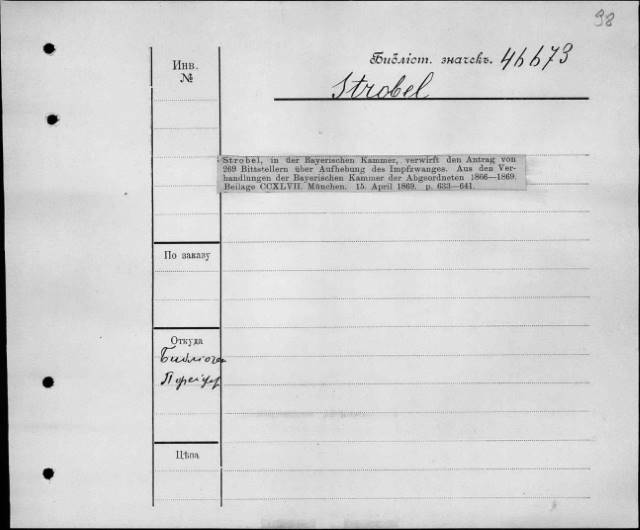 98
Библіот. значекъ. 46673
Инв.
№
Strobel
Strobel, in der Bayerischen Kammer, verwirft den Antrag von
269 Bittstellern über Aufhebung des Impfzwanges. Aus den Ver-
handlungen der Bayerischen Kammer der Abgeordneten 1866—1869.
Beilage CCXLVII. München. 15. April 1869. p. 633—641.
По заказу
Откуда
Библіотека
Цѣна